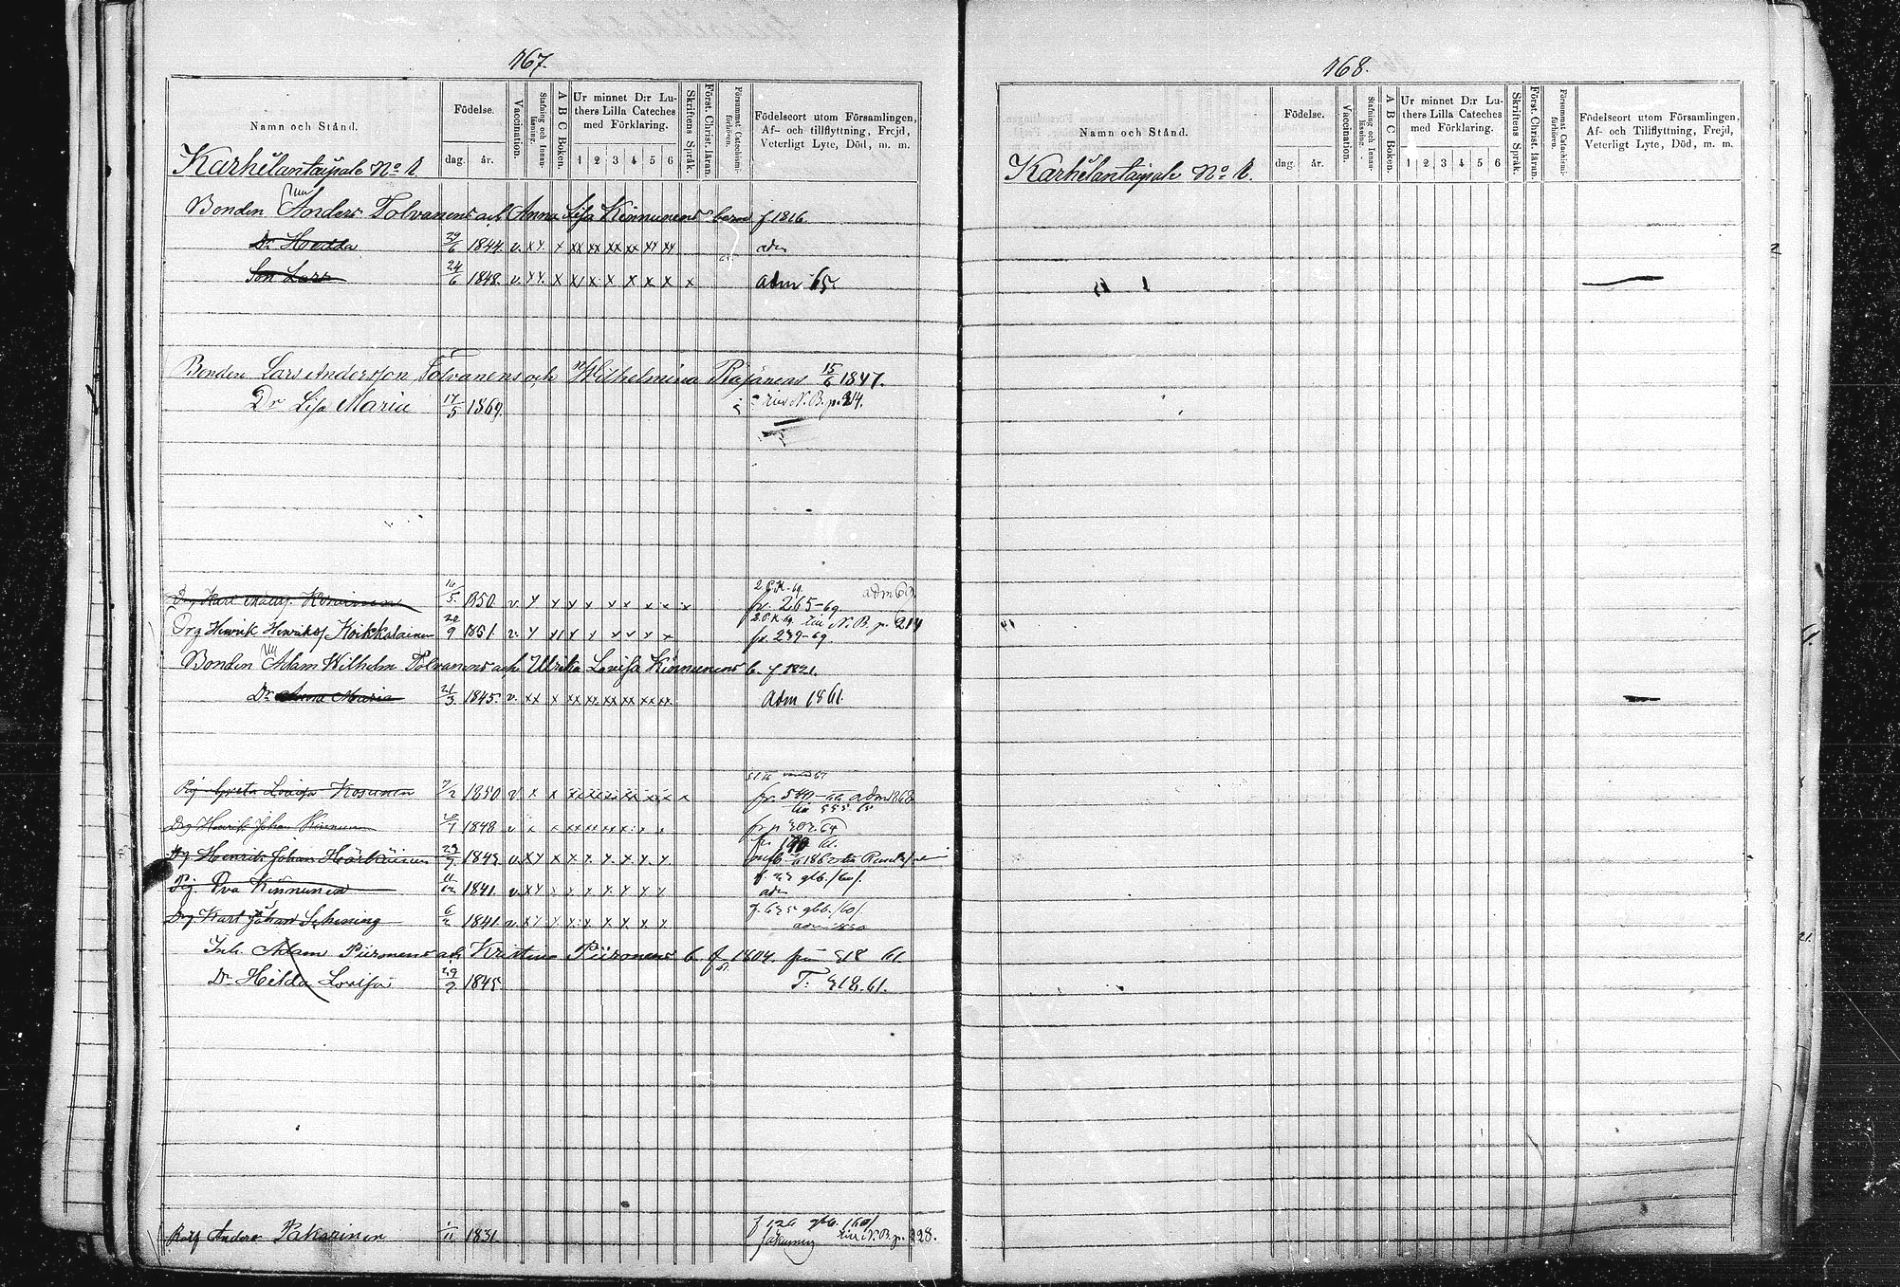 167.
Namn och Stånd.
Födelse.
dag. år.
Vaccination.
Stafning och Innanläsning.
A B C Boken.
Ur minnet D:r Luthers Lilla Cateches med Förklaring.
1 2 3 4 5 6
Skriftens Språk.
Först. Christ. läran.
Försummat Catechismiförhören.
Födelseort utom Församlingen,
Af- och tillflyttning, Frejd,
Veterligt Lyte, Död, m. m.
Karhelantaipale No 1
Bonden Anders Tolvanens och Anna Lisa Kinnunens barn f 1816.
Dr Hedda 29/6 1844. v. xx x xx xx xx xx xx xx adm
Son Lars 24/6 1848. v. xx. x x x x x x x x adm 65.
Bonden Lars Andersson Tolvanens och Wilhelmina Räsänens 15/6 1847.
Dr Lisa Maria 17/5 1869. N. B. p. 214.
Drg Karl 1850. v. x x x x x x x x x fr. 265-69. adm 69
Drg Henrik Henrikss Koikkalainen 9 1851 v. x x x x x x x x fr. 279-69. till N. B. p. 214
Bonden Adam Wilhelm Tolvanens och Ulrika Lovisa Kinnunens b. f 1821.
Dr Anna Maria 21/3 1845. v. xx x xx xx xx xx xx xx. adm 1861.
Pig Greta Lovisa Kosunen 7/2 1850 v x x xx xx xx xx xx x x fr. 540 adm 1868
till 555.
Drg Henrik Johan Kinnunen 1848 v x x xx xx xx x x x fr p 202. 64
fr. 190 61.
Drg Henrik Johan Härkäinen 1843 v. xx x x x. x. x x x
Pig. Eva Kinnunen 11/12 1841. v. xx x x x x x x x f. 27 glb. /60/.
adm
Drg Karl Johan Schening 6/2 1841 v. xx x x x x x x x f. 675 glb. /60/
Inh. Adam Piironens och Kristina Piironens b. f 1804. från 318 61.
Dr Hilda Lovisa 29/2 1845 T. 318. 61.
Anders Pakarinen 1/11 1831. f 126 glb. /60/
till N. B. p. 228.
168.
Namn och Stånd.
Födelse.
dag. år.
Vaccination.
Stafning och Innanläsning.
A B C Boken.
Ur minnet D:r Luthers Lilla Cateches med Förklaring.
1 2 3 4 5 6
Skriftens Språk.
Först. Christ. läran.
Försummat Catechismiförhören.
Födelseort utom Församlingen,
Af- och Tillflyttning, Frejd,
Veterligt Lyte, Död, m. m.
Karhelantaipale No 1.